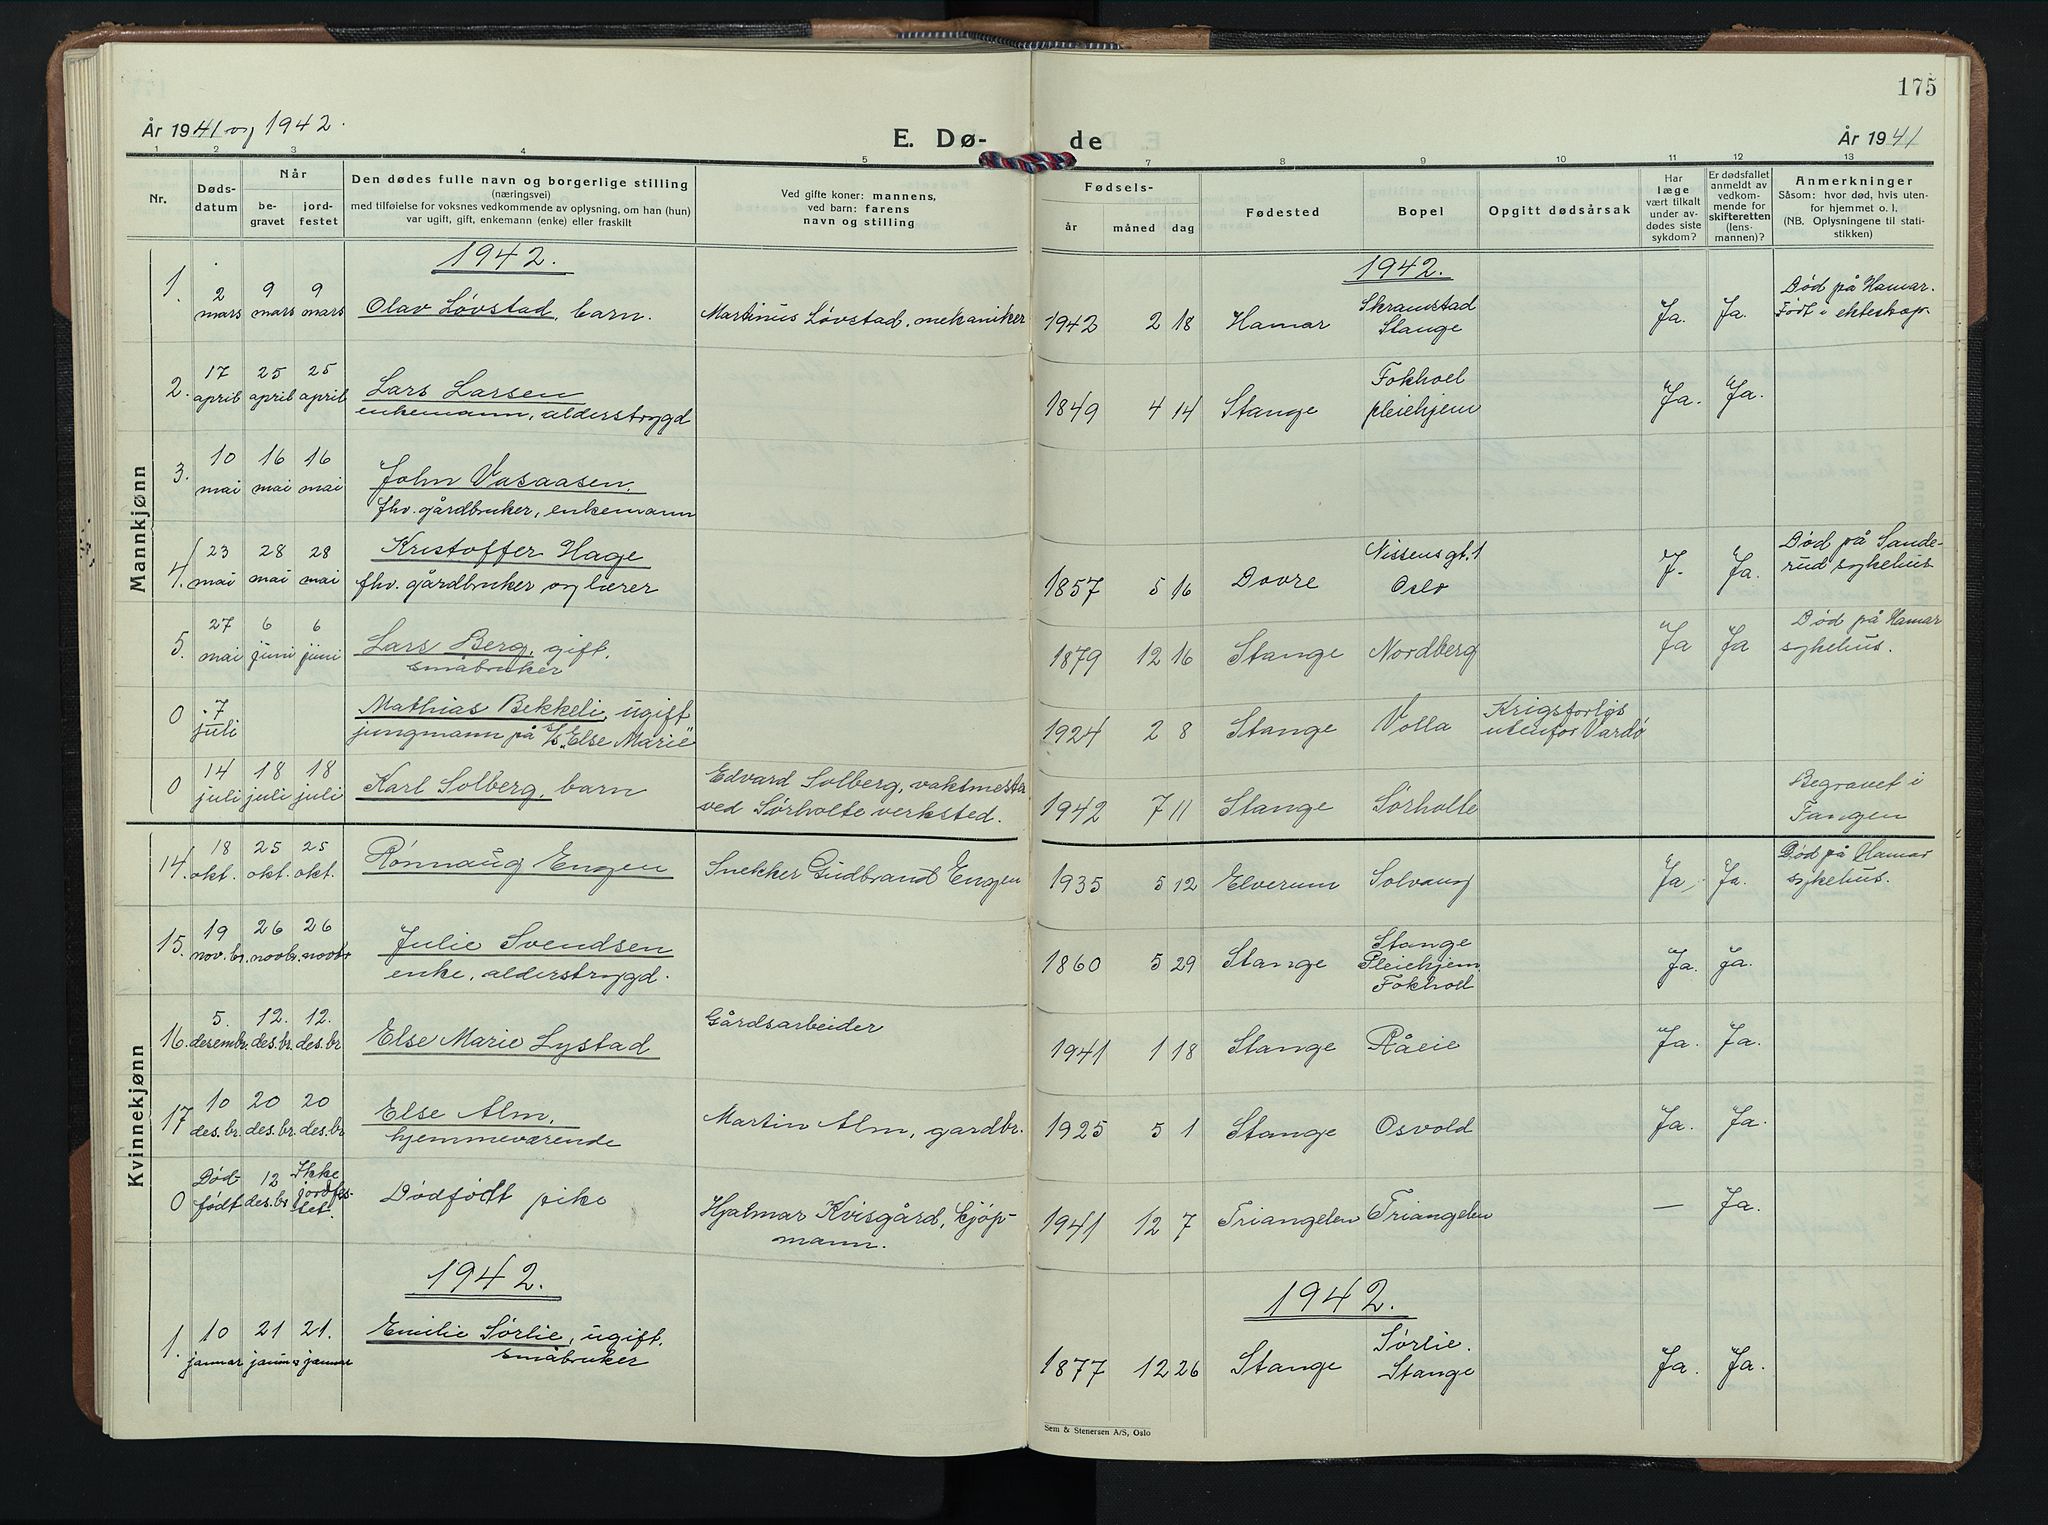 175
År 1941 og 1942.
E. Dø-
de
År 1941
1 2 3 4 5 7 8 9 10 11 12 13
Nr.
Døds-
datum
Når
be-
gravet
jord-
festet
Den dødes fulle navn og borgerlige stilling
(næringsvei)
med tilføielse for voksnes vedkommende av oplysning, om han (hun)
var ugift, gift, enkemann (enke) eller fraskilt
Ved gifte koner: mannens,
ved barn: farens
navn og stilling
Fødsels-
år måned dag
Fødested
Bopel
Opgitt dødsårsak
Har
læge
vært tilkalt
under av-
dødes siste
sykdom?
Er dødsfallet
anmeldt av
vedkom-
mende for
skifteretten
(lens-
mannen)?
Anmerkninger
Såsom: hvor død, hvis uten-
for hjemmet o. l.
(NB. Oplysningene til stati-
stikken)
Mannkjønn
1942.
1942.
1. 2 mars 9 mars 9 mars
Olav Løvstad, barn.
Martinus Løvstad, mekaniker
1942 2 18 Hamar
Skramstad
Stange
Ja. Ja.
Død på Hamar.
Født i ekteskap.
2. 17 april 25 april 25 april
Lars Larsen
enkemann, alderstrygd
1849 4 14 Stange
Fokhoel
pleiehjem
Ja. Ja.
3. 10 mai 16 mai 16 mai
John Vasaasen,
fhv. gårdbruker, enkemann
4. 23 mai 28 mai 28 mai
Kristoffer Hage
fhv. gårdbruker og lærer
1857 5 16 Dovre
Nissens gt. 1
Oslo
J. Ja.
Død på Sande-
rud sykehus
5. 27 mai 6 juni 6 juni
Lars Berg, gift,
småbruker
1879 12 16 Stange Nordberg
Ja Ja
Død på Hamar
sykehus.
0 7 juli
Mathias Bekkeli, ugift
jungmann på "Else Marie"
1924 2 8 Stange Volla
Krigsforlis
utenfor Vardø
0 14 juli 18 juli 18 juli
Karl Solberg, barn
Edvard Solberg, vaktmester
ved Sørholte verksted.
1942 7 11 Stange Sørholte
Begravet i
Tangen
Kvinnekjønn
14. 18 okt. 25 okt. 25 okt.
Rønnaug Engen
Snekker Gudbrand Engen
1935 5 12 Elverum Solvang
Ja, Ja.
Død på Hamar
sykehus.
15. 19 nov.br. 26 novbr. 26 novbr
Julie Svendsen
enke, alderstrygd.
1860 5 29 Stange
Stange
Pleiehjem
Fokhoel
Ja. Ja.
16. 5. desembr. 12. des.br. 12. des.br
Else Marie Lystad
Gårdsarbeider
1941 1 18 Stange Råeie
Ja. Ja.
17 10 des.br. 20 des.br. 20 des.br
Else Alm,
hjemmeværende
Martin Alm, gardbr.
1925 5 1 Stange Osvold
Ja. Ja.
0 Død-
født
12 des.br
Ikke
jordfes-
tet.
Dødfødt pike
Hjalmar Kvisgård, kjøp-
mann.
1941 12 7 Triangelen Triangelen
— Ja.
1942.
1942.
1. 10 januar 21 januar 21. januar
Emilie Sørlie, ugift.
småbruker
1877 12 26 Stange
Sørlie.
Stange
Ja. Ja.
Sem & Stenersen A/S, Oslo